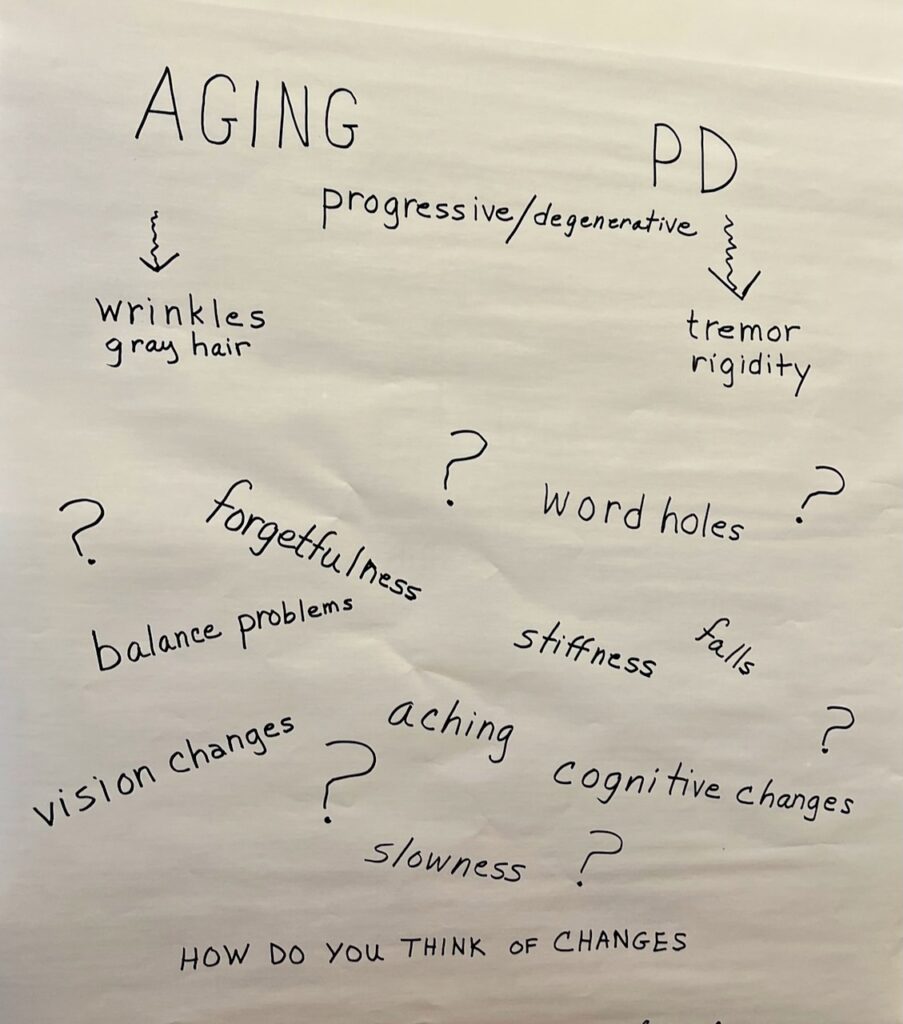 AGING
PD
progressive/degenerative
wrinkles
gray hair
tremor
rigidity
?
forgetfulness
?
word holes
?
balance problems
stiffness
falls
vision changes
aching
?
cognitive changes
?
slowness
?
HOW DO YOU THINK OF CHANGES